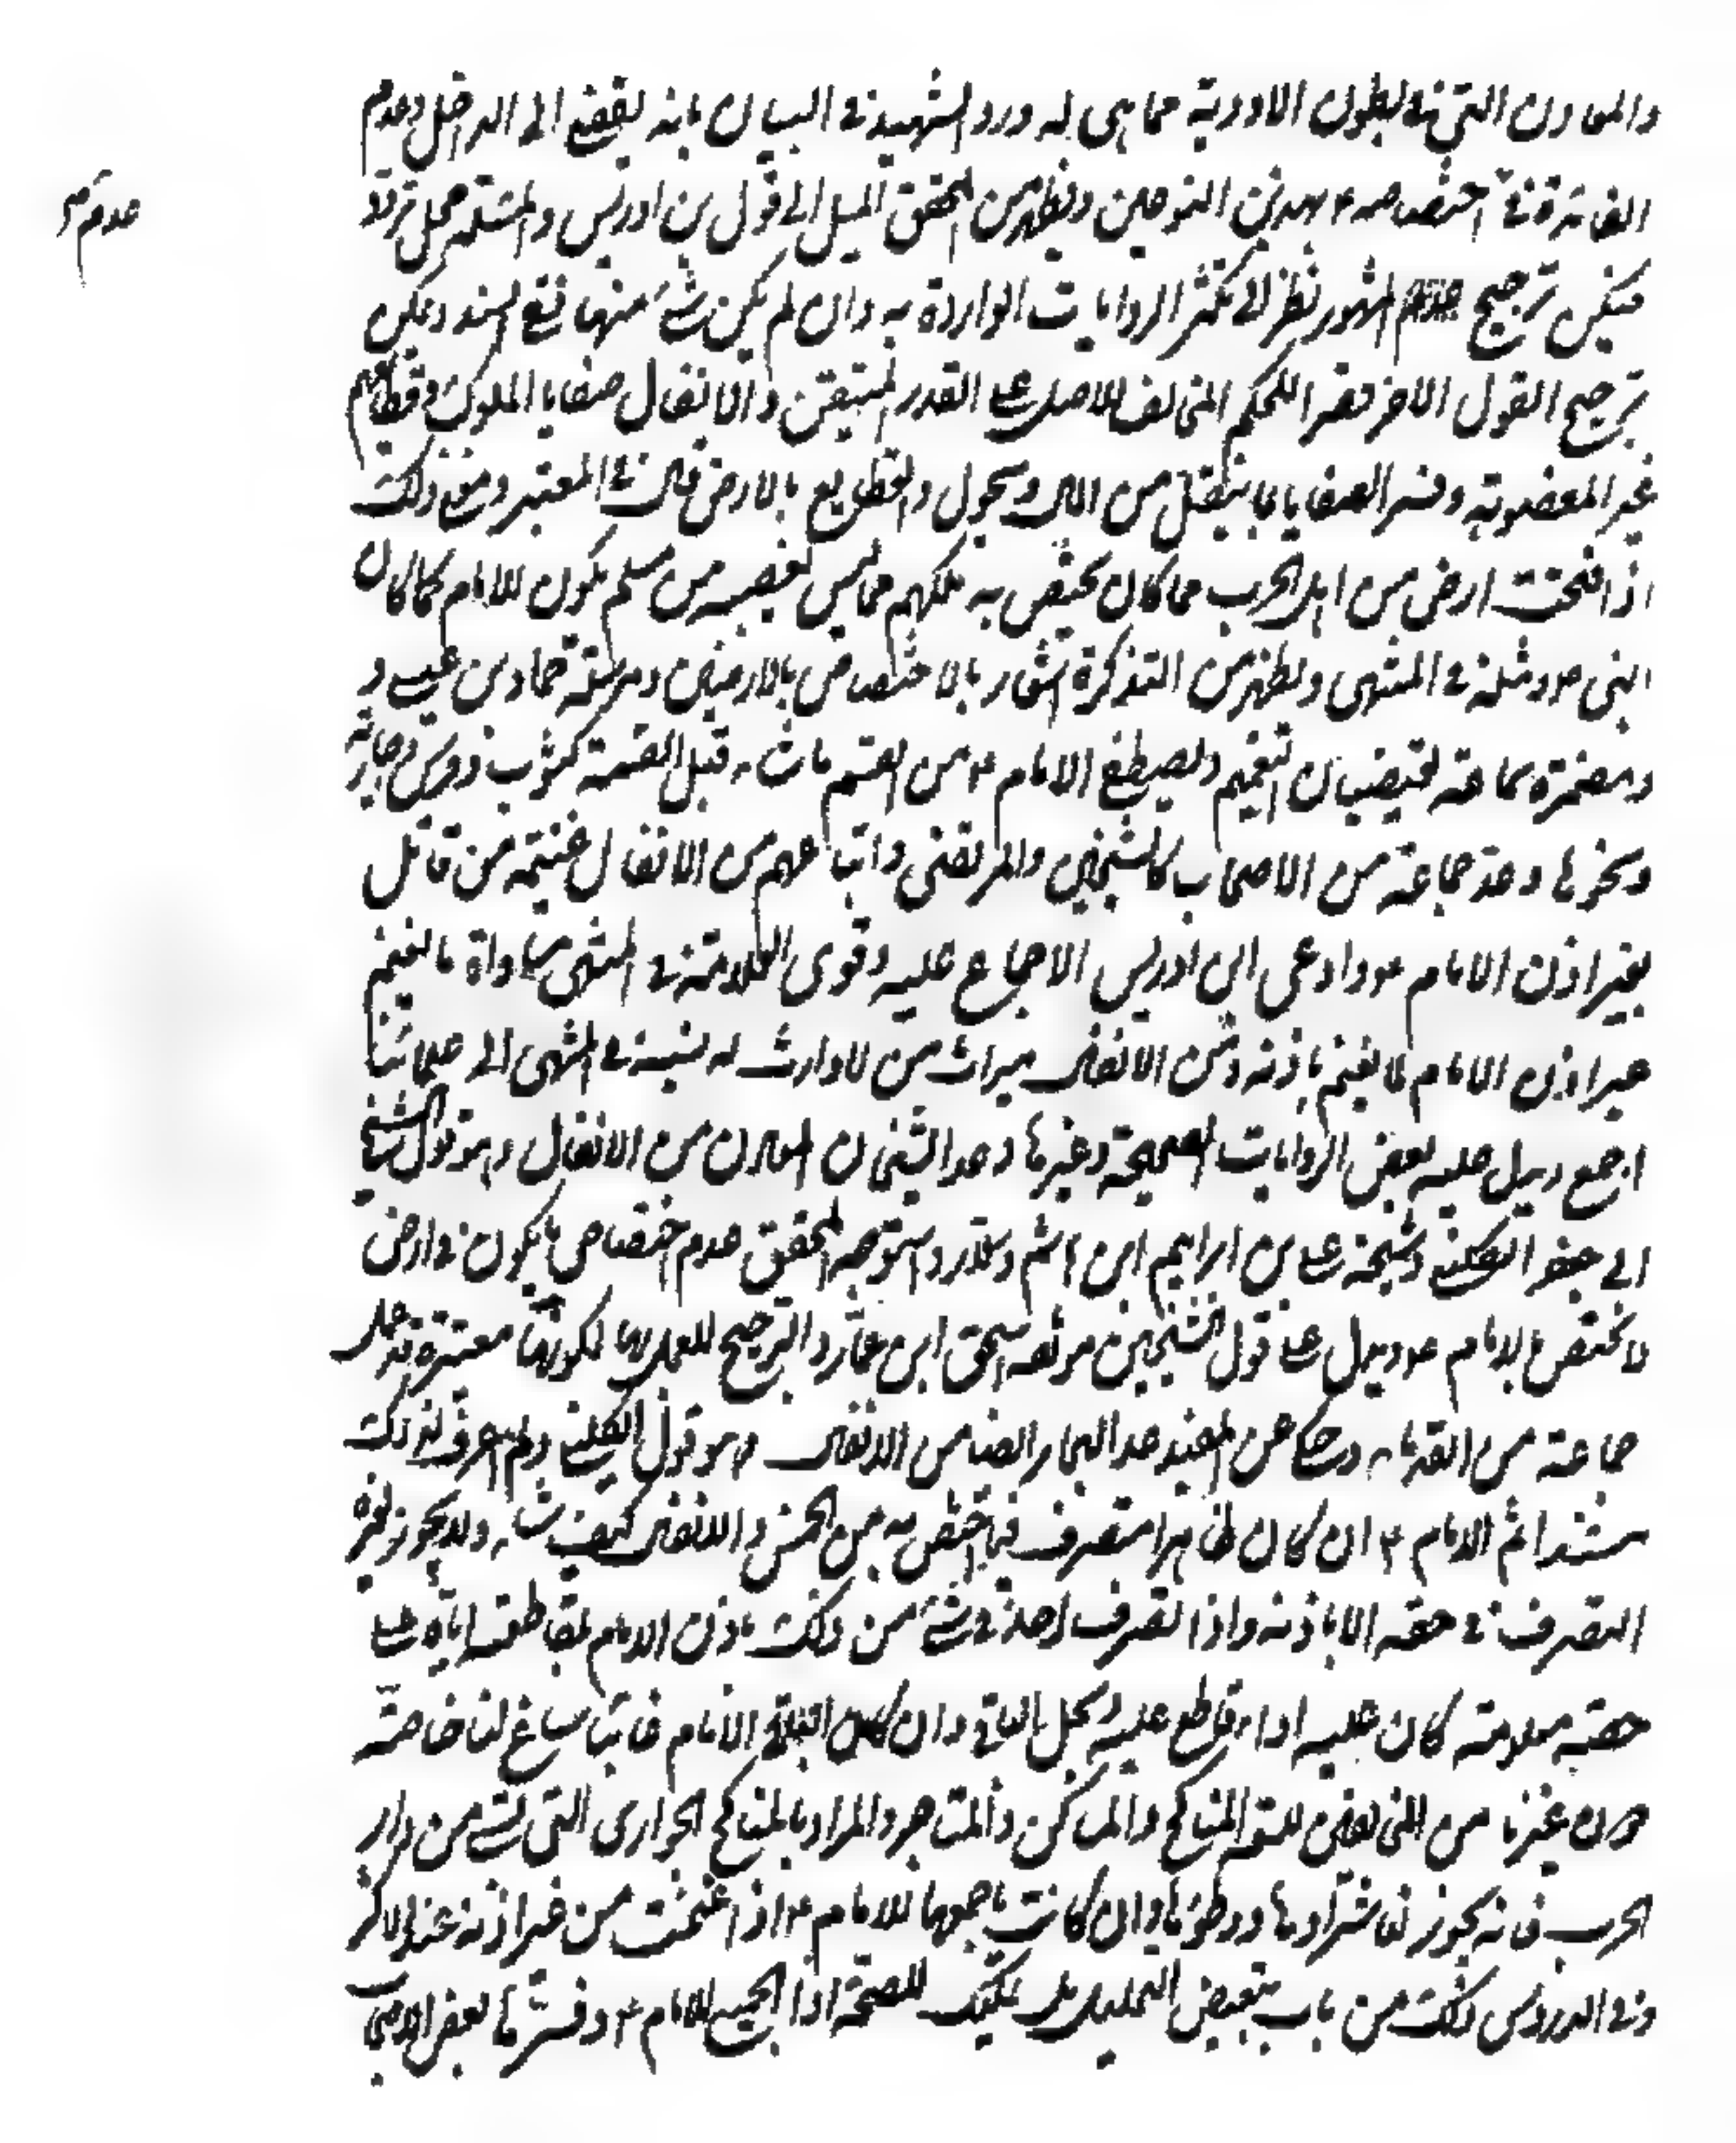 والمعادن التي في بطون الاودية مما هي له ورد الشهيد في البيان بانه يفضي الى التداخل وعدم
الفائدة في اختصاصه ع بهذين النوعين ويظهر من المحقق الميل الى قول بن ادريس والمسئلة محل تردد
عدم
فيمكن ترجيح المشهور نظرا الى تكثر الروايات الواردة به وان لم يكن شئ منها نقي السند ويمكن
ترجيح القول الاخر قصرا للحكم المخالف للاصل على القدر المتيقن والانفال صفايا الملوك وقطائعهم
غير المغصوبة وفسر الصفايا بما ينقل من المال ويحول والقطايع بالارض قال في المعتبر ومعنى ذلك
اذا فتحت ارض من اهل الحرب فما كان يختص به ملكهم مما ليس بغصب من مسلم يكون للامام كما كان
للنبي ص ومثله في المنتهى ويظهر من التذكرة اشعار بالاختصاص بالارضين ومرسلة حماد بن عيسى و
ومضمرة سماعة تقتضيان التعميم ويصطفي الامام ع من الغنيمة ما شاء قبل القسمة كثوب وفرس وجارية
ونحوها وعد جماعة من الاصحاب كالشيخين والمرتضى واتباعهم من الانفال غنيمة من قاتل
بغير اذن الامام ع وادعى ابن ادريس الاجماع عليه وقوى العلامة في المنتهى مساواة ما يغنم
بغير اذن الامام لما يغنم باذنه ومن الانفال ميراث من لا وارث له نسبه في المنتهى الى علمائنا
اجمع ويدل عليه بعض الروايات الصحيحة وغيرها وعد الشيخان المعادن من الانفال وهو قول الشيخ
ابي جعفر الكليني وشيخه علي بن ابراهيم ابن هاشم وسلار واستوجه المحقق عدم اختصاص ما يكون في ارض
لا تختص بالامام ع ويدل على قول الشيخين موثقة اسحق ابن عمار والترجيح للعمل بها لكونها معتبرة قد عمل
جماعة من القدماء وحكي عن المفيد عد البحار ايضا من الانفال وهو قول الكليني ولم اعرف لذلك
مستندا ثم الامام ع ان كان ظاهرا متصرف فيما يختص به من الخمس والانفال كيف شاء ولا يجوز لغيره
التصرف في حقه الا باذنه واذا تصرف احد في شئ من ذلك باذن الامام بمقاطعته اياه على
حصة معلومة كان عليه اداء ما قاطع عليه ويحل له الباقي وان كان الامام غائبا ساغ لنا خاصة
دون غيرنا من المخالفين للشيعة المناكح والمساكن والمتاجر والمراد بالمناكح الجواري التي تسبى من دار
الحرب فانه يجوز لنا شراؤها ووطؤها وان كانت باجمعها للامام ع اذا غنمت من غير اذنه عند الاكثر
وفي الدروس ليس ذلك من باب تبعيض التحليل بل تمليك للحصة او الجميع للامام ع وفسرها بعض الاصحاب